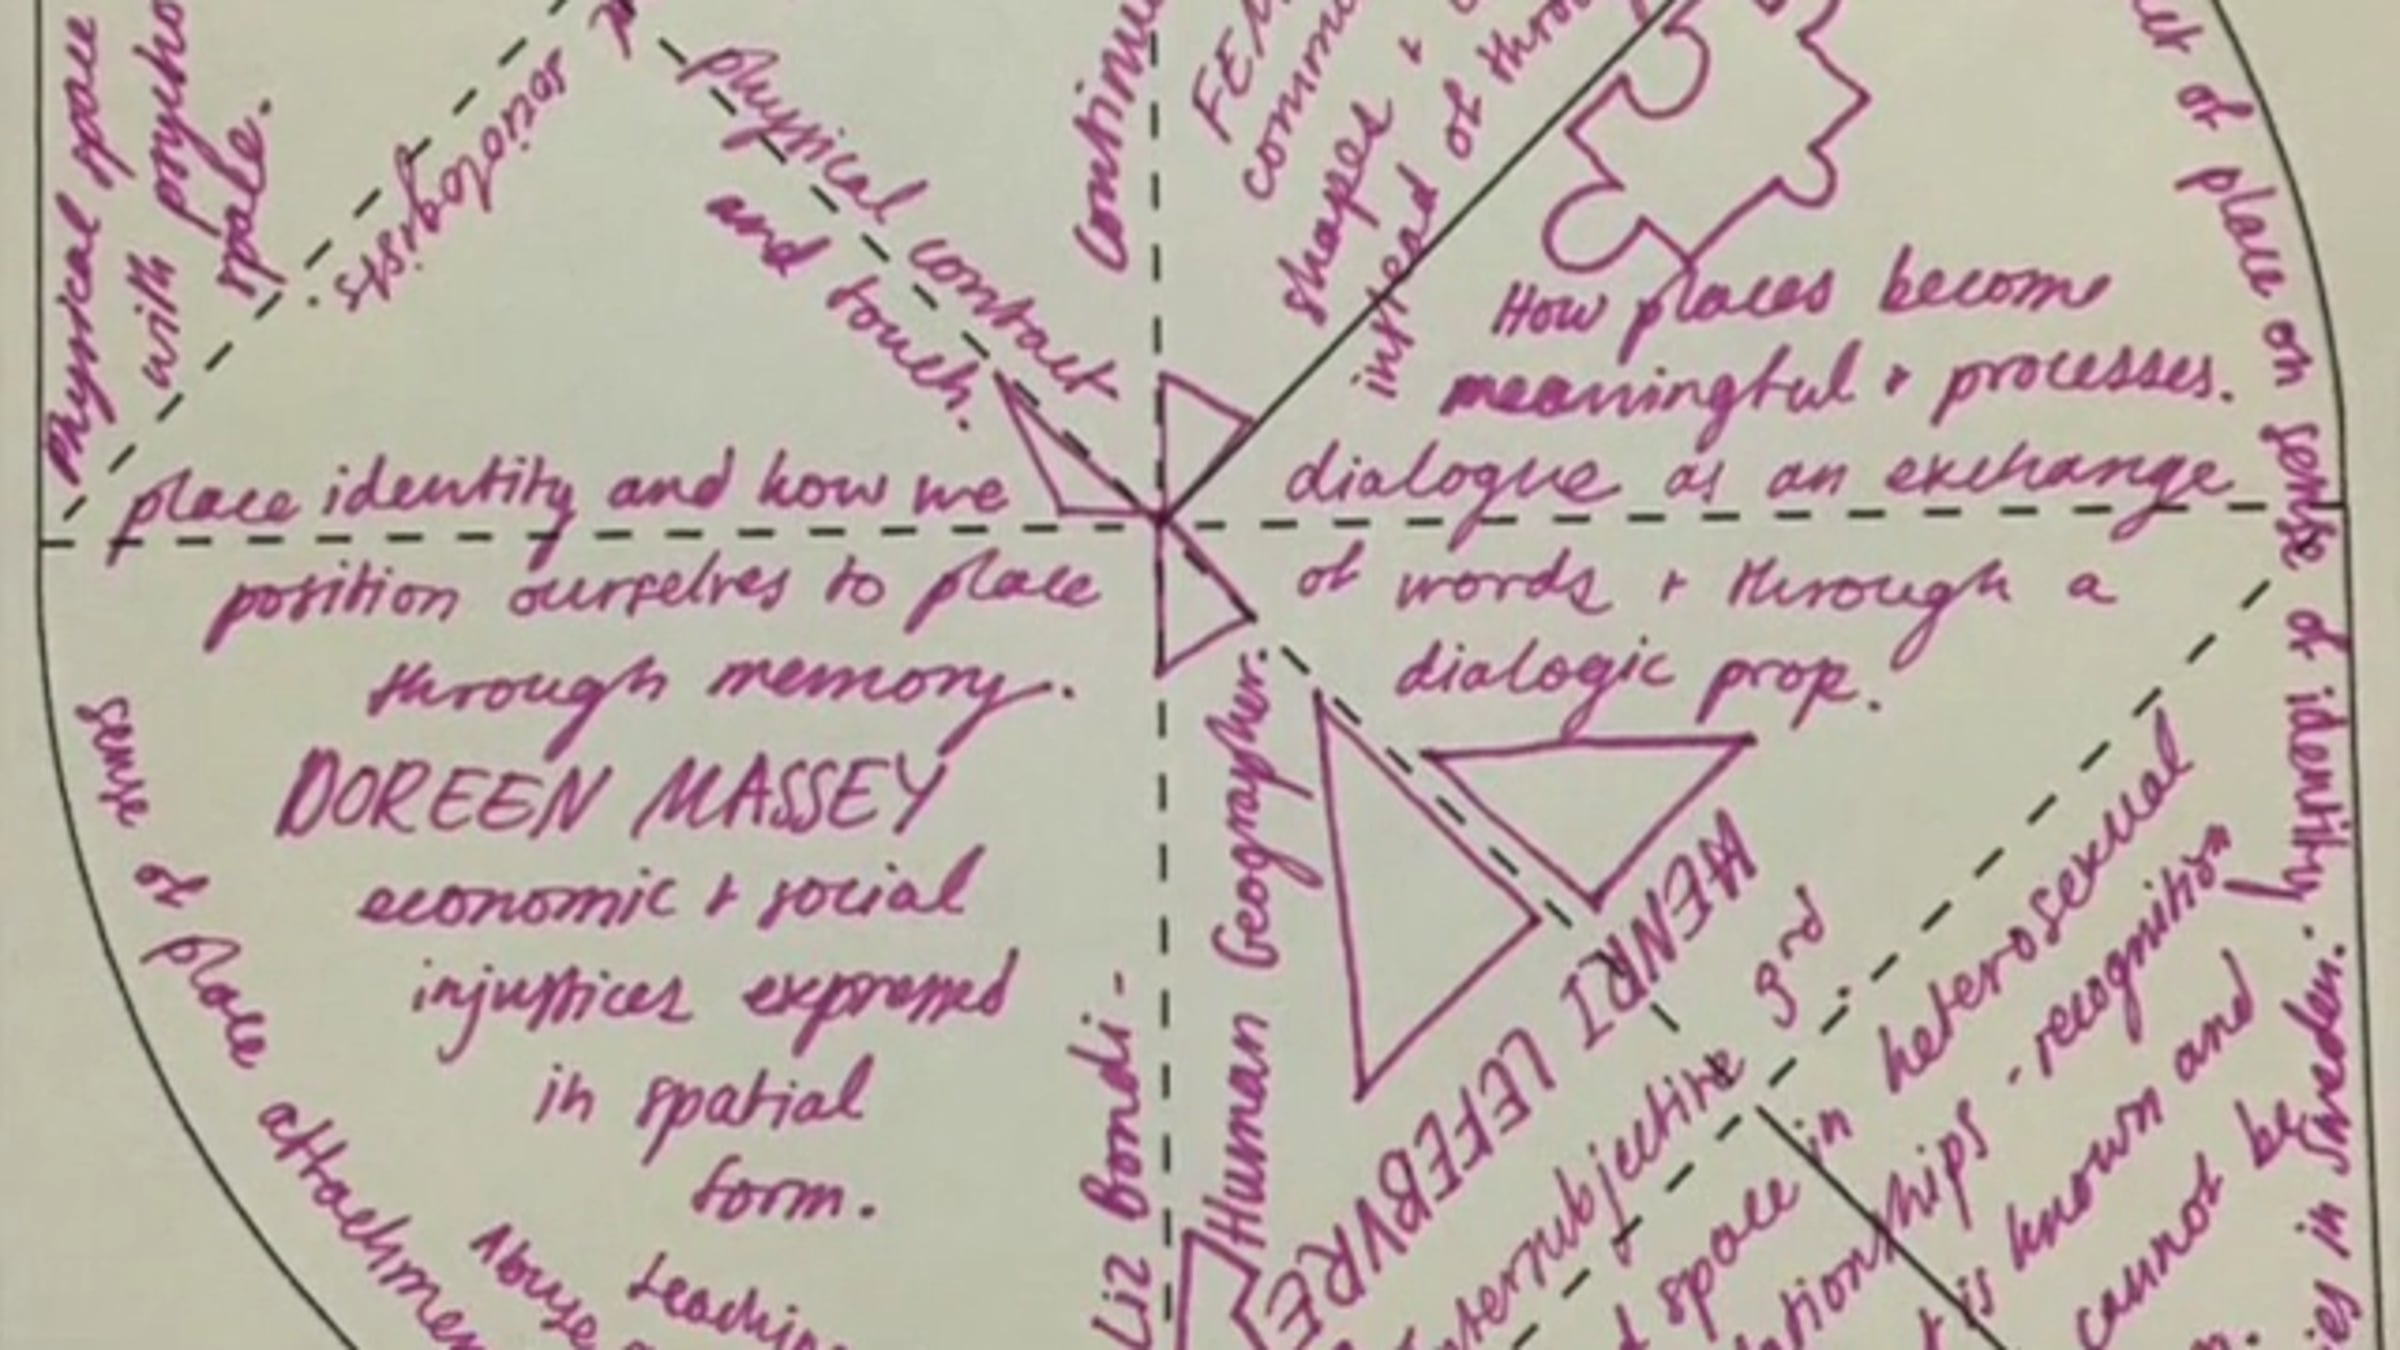 Physical space
with psycho
spale.
sociologists.
physical contact
and touch.
Continu
FEM
commu
shapes +
instead of thro
How places become
meaningful + processes.
dialogue as an exchange
of words + through a
dialogic prop.
ect of place on sense of identity.
place identity and how we
position ourselves to place
through memory.
DOREEN MASSEY
economic + social
injustices expressed
in spatial
form.
sense of place attachmen
Abuse
teachin
Liz Bondi -
Human Geographer.
HENRI LEFEBVRE
3rd
intersubjective
space in heterosexual
lationships - recognition
is known and
cannot be
ies in sweden.